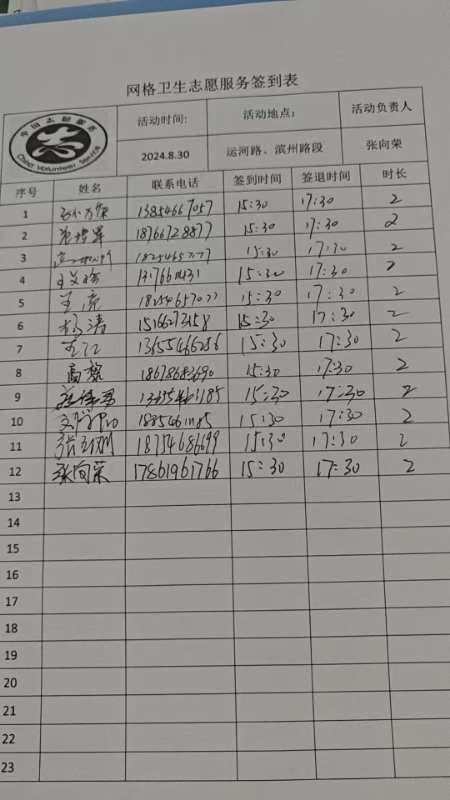 网格卫生志愿服务签到表
中国志愿服务
China Volunteer Service
活动时间: 活动地点: 活动负责人
2024.8.30 运河路、滨州路段 张向荣
序号 姓名 联系电话 签到时间 签退时间 时长
1 13854667057 15:30 17:30 2
2 18766728877 15:30 17:30 2
3 15:30 17:30 2
4 15:30 17:30 2
5 王亮 15:30 17:30 2
6 杨涛 15166273458 15:30 17:30 2
7 王江 13655466286 15:30 17:30 2
8 高敏 18678683690 15:30 17:30 2
9 15:30 17:30 2
10 15:30 17:30 2
11 18754686699 15:30 17:30 2
12 张向荣 17861961766 15:30 17:30 2
13
14
15
16
17
18
19
20
21
22
23